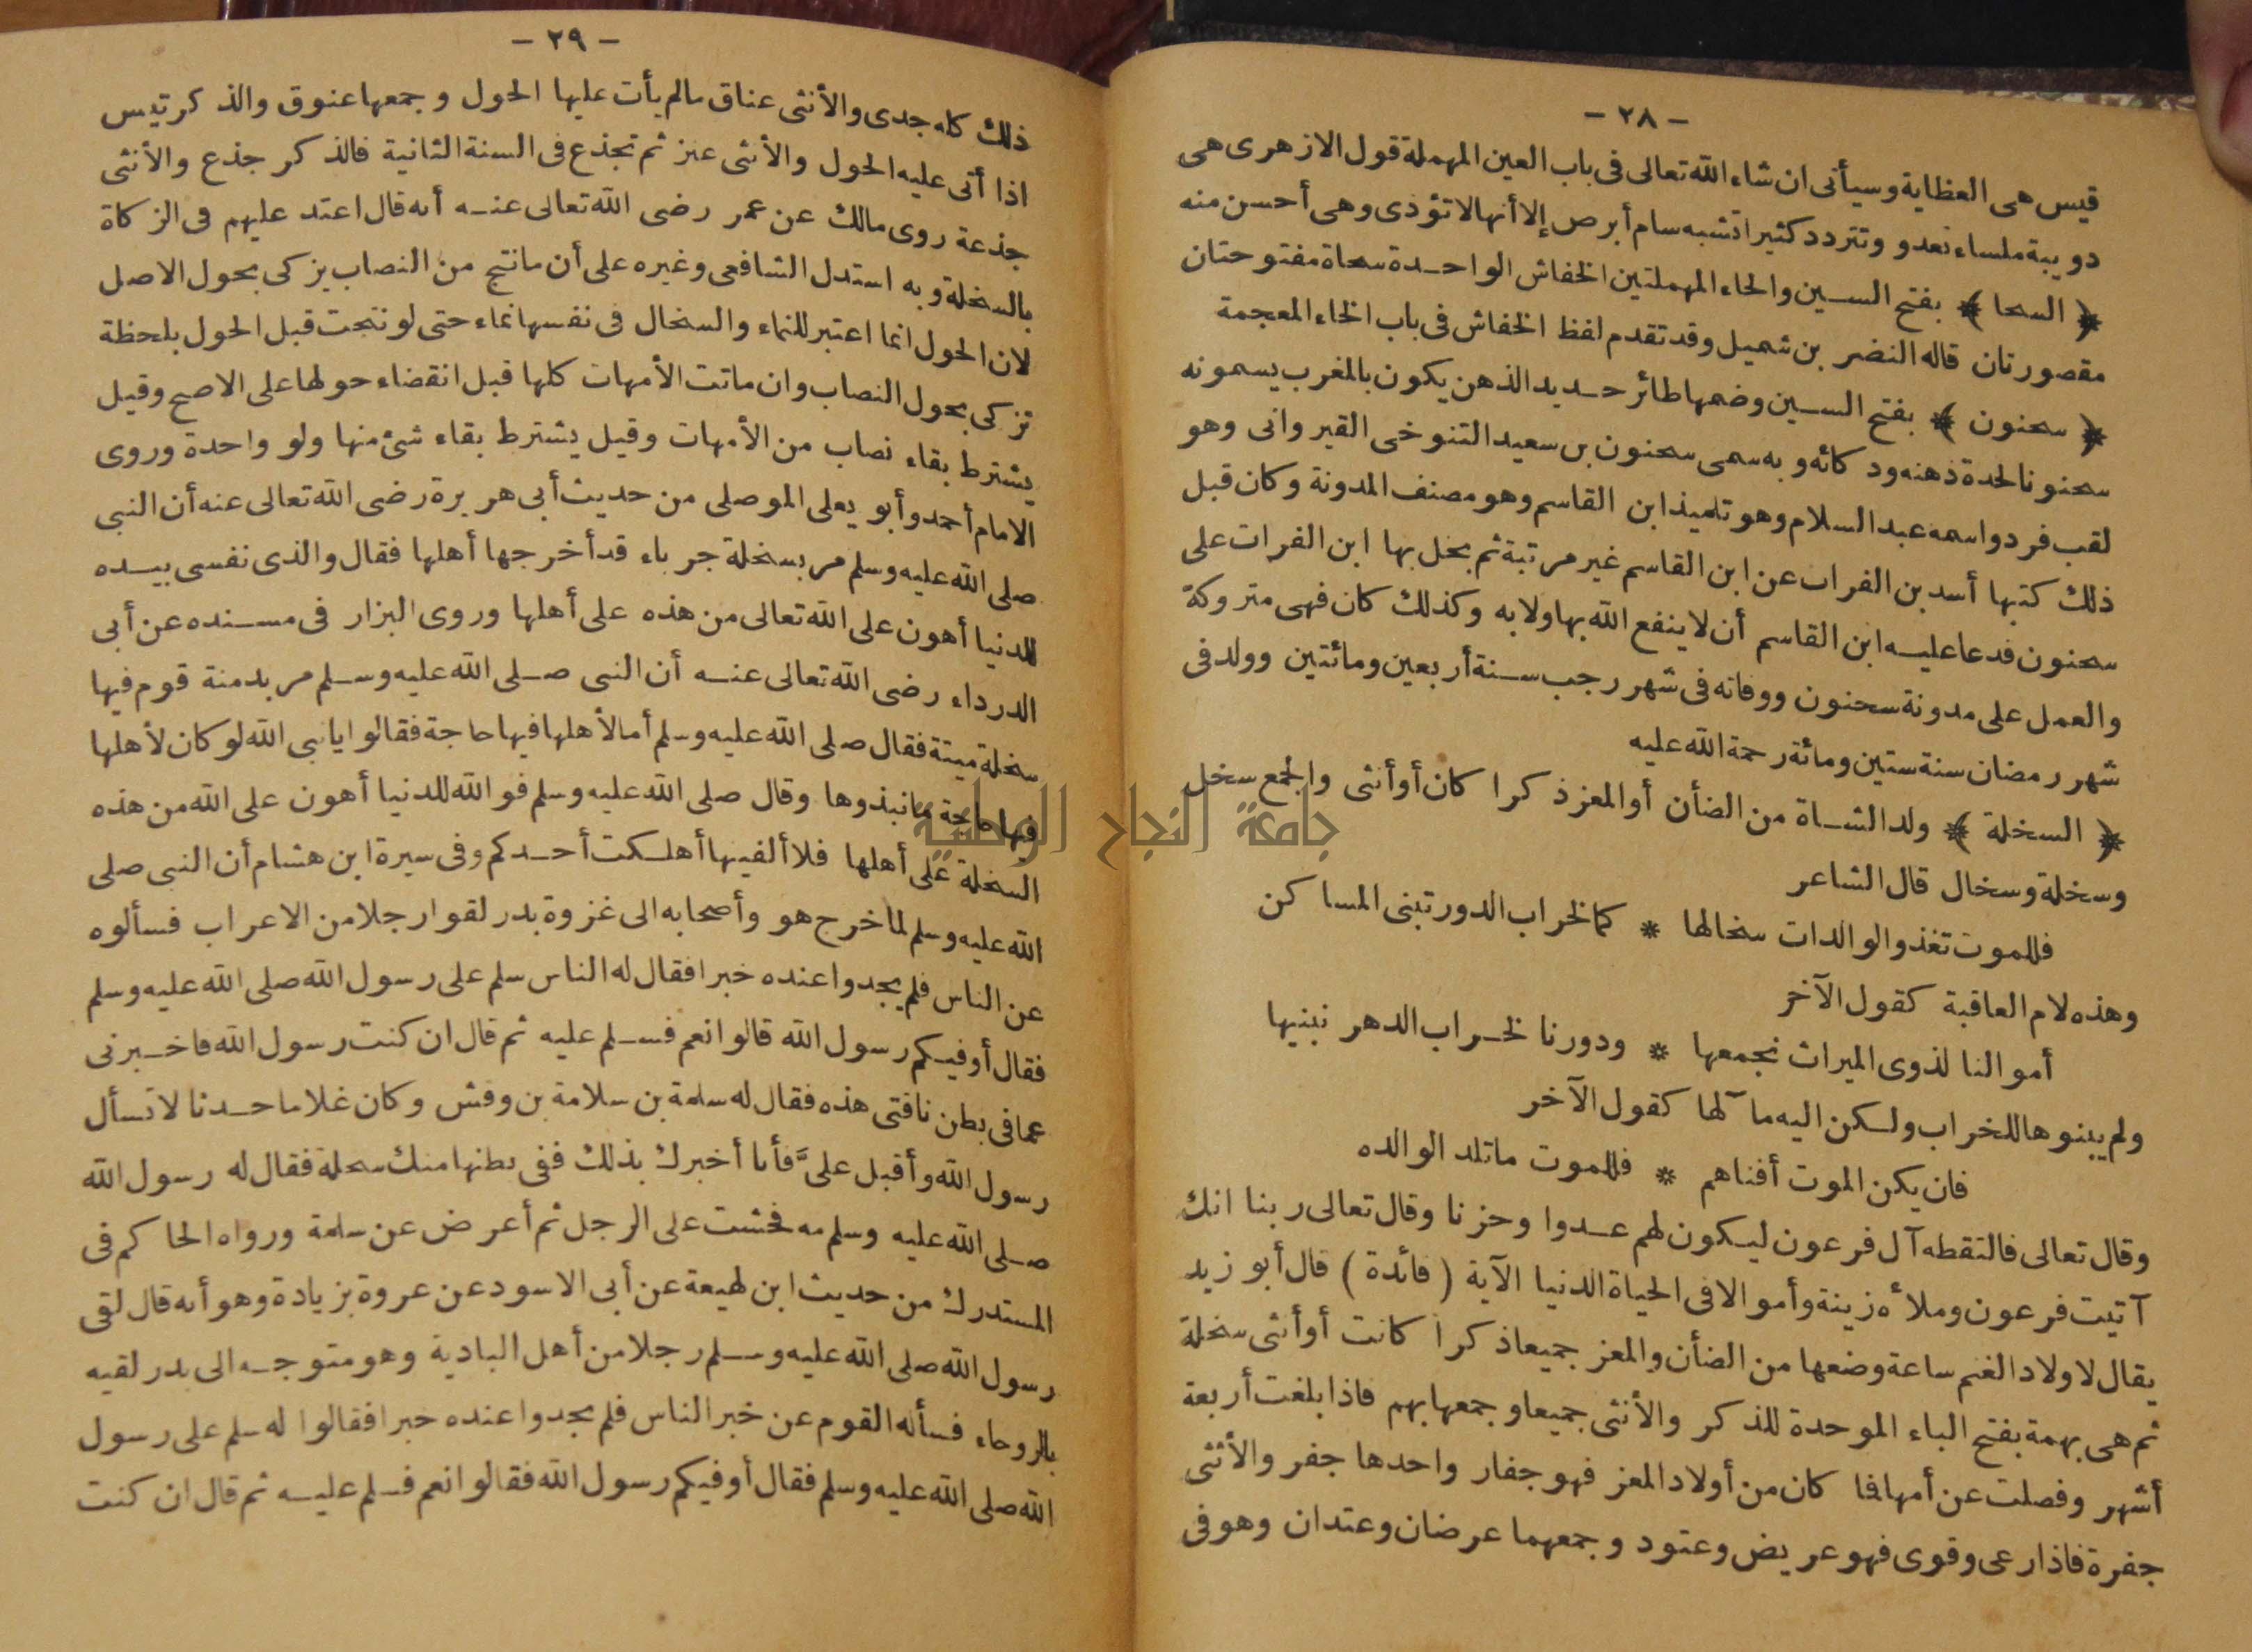 - ٢٨ -
قيس هى العظاية وسيأتى ان شاء الله تعالى فى باب العين المهملة قول الازهرى هى
دويبة ملساء تعدو وتتردد كثيرا تشبه سام أبرص إلا أنها لا تؤذى وهى أحسن منه
﴿ السحا ﴾ بفتح السين والحاء المهملتين الخفاش الواحدة سحاة مفتوحتان
مقصورتان قاله النضر بن شميل وقد تقدم لفظ الخفاش فى باب الخاء المعجمة
﴿ سحنون ﴾ بفتح السين وضمها طائر حديد الذهن يكون بالمغرب يسمونه
سحنونا لحدة ذهنه ودكائه وبه سمى سحنون بن سعيد التنوخى القيروانى وهو
لقب فرد واسمه عبد السلام وهو تلميذ ابن القاسم وهو مصنف المدونة وكان قبل
ذلك كتبها أسد بن الفرات عن ابن القاسم غير مرتبة ثم بخل بها ابن الفرات على
سحنون فدعا عليه ابن القاسم أن لا ينفع الله بها ولا به وكذلك كان فهى متروكة
والعمل على مدونة سحنون ووفاته فى شهر رجب سنة أربعين ومائتين وولد فى
شهر رمضان سنة ستين ومائة رحمة الله عليه
﴿ السخلة ﴾ ولد الشاة من الضأن أو المعز ذكرا كان أو أنثى والجمع سخل
وسخلة وسخال قال الشاعر
فللموت تغذو الوالدات سخالها * كما لخراب الدور تبنى المساكن
وهذه لام العاقبة كقول الآخر
أموالنا لذوى الميراث نجمعها * ودورنا لخراب الدهر نبنيها
ولم يبنوها للخراب ولكن اليه مآلها كقول الآخر
فان يكن الموت أفناهم * فللموت ماتلد الوالده
وقال تعالى فالتقطه آل فرعون ليكون لهم عدوا وحزنا وقال تعالى ربنا انك
آتيت فرعون وملأه زينة وأموالا فى الحياة الدنيا الآية ( فائدة ) قال أبو زيد
يقال لاولاد الغنم ساعة وضعها من الضأن والمعز جميعا ذكرا كانت أو أنثى سخلة
ثم هى بهمة بفتح الباء الموحدة للذكر والأنثى جميعا وجمعها بهم فاذا بلغت أربعة
أشهر وفصلت عن أمها فما كان من أولاد المعز فهو جفار واحدها جفر والأنثى
جفرة فاذا رعى وقوى فهو عريض وعتود وجمعهما عرضان وعتدان وهو فى
- ٢٩ -
ذلك كله جدى والأنثى عناق مالم يأت عليها الحول وجمعها عنوق والذكر تيس
اذا أتى عليه الحول والأنثى عنز ثم تجذع فى السنة الثانية فالذكر جذع والأنثى
جذعة روى مالك عن عمر رضى الله تعالى عنه أنه قال اعتد عليهم فى الزكاة
بالسخلة وبه استدل الشافعى وغيره على أن مانتج من النصاب يزكى بحول الاصل
لان الحول انما اعتبر للنماء والسخال فى نفسها نماء حتى لو نتجت قبل الحول بلحظة
تزكى بحول النصاب وان ماتت الأمهات كلها قبل انقضاء حولها على الاصح وقيل
يشترط بقاء نصاب من الأمهات وقيل يشترط بقاء شئ منها ولو واحدة وروى
الامام أحمد وأبو يعلى الموصلى من حديث أبى هريرة رضى الله تعالى عنه أن النبى
صلى الله عليه وسلم مر بسخلة جرباء قد أخرجها أهلها فقال والذى نفسى بيده
للدنيا أهون على الله تعالى من هذه على أهلها وروى البزار فى مسنده عن أبى
الدرداء رضى الله تعالى عنه أن النبى صلى الله عليه وسلم مر بدمنة قوم فيها
سخلة ميتة فقال صلى الله عليه وسلم أما لأهلها فيها حاجة فقالوا يانبى الله لو كان لأهلها
فيها حاجة مانبذوها وقال صلى الله عليه وسلم فو الله للدنيا أهون على الله من هذه
السخلة على أهلها فلا ألفينها أهلكت أحدكم وفى سيرة ابن هشام أن النبى صلى
الله عليه وسلم لما خرج هو وأصحابه الى غزوة بدر لقوا رجلا من الاعراب فسألوه
عن الناس فلم يجدوا عنده خبرا فقال له الناس سلم على رسول الله صلى الله عليه وسلم
فقال أوفيكم رسول الله قالوا نعم فسلم عليه ثم قال ان كنت رسول الله فاخبرنى
عما فى بطن ناقتى هذه فقال له سلمة بن سلامة بن وقش وكان غلاما حدثا لا تسأل
رسول الله وأقبل علىَّ فأنا أخبرك بذلك ففى بطنها منك سخلة فقال له رسول الله
صلى الله عليه وسلم مه فحشت على الرجل ثم أعرض عن سلمة ورواه الحاكم فى
المستدرك من حديث ابن لهيعة عن أبى الاسود عن عروة بزيادة وهو أنه قال لقى
رسول الله صلى الله عليه وسلم رجلا من أهل البادية وهو متوجه الى بدر لقيه
بالروحاء فسأله القوم عن خبر الناس فلم يجدوا عنده خبرا فقالوا له سلم على رسول
الله صلى الله عليه وسلم فقال أوفيكم رسول الله فقالوا نعم فسلم عليه ثم قال ان كنت
جامعة النجاح الوطنية